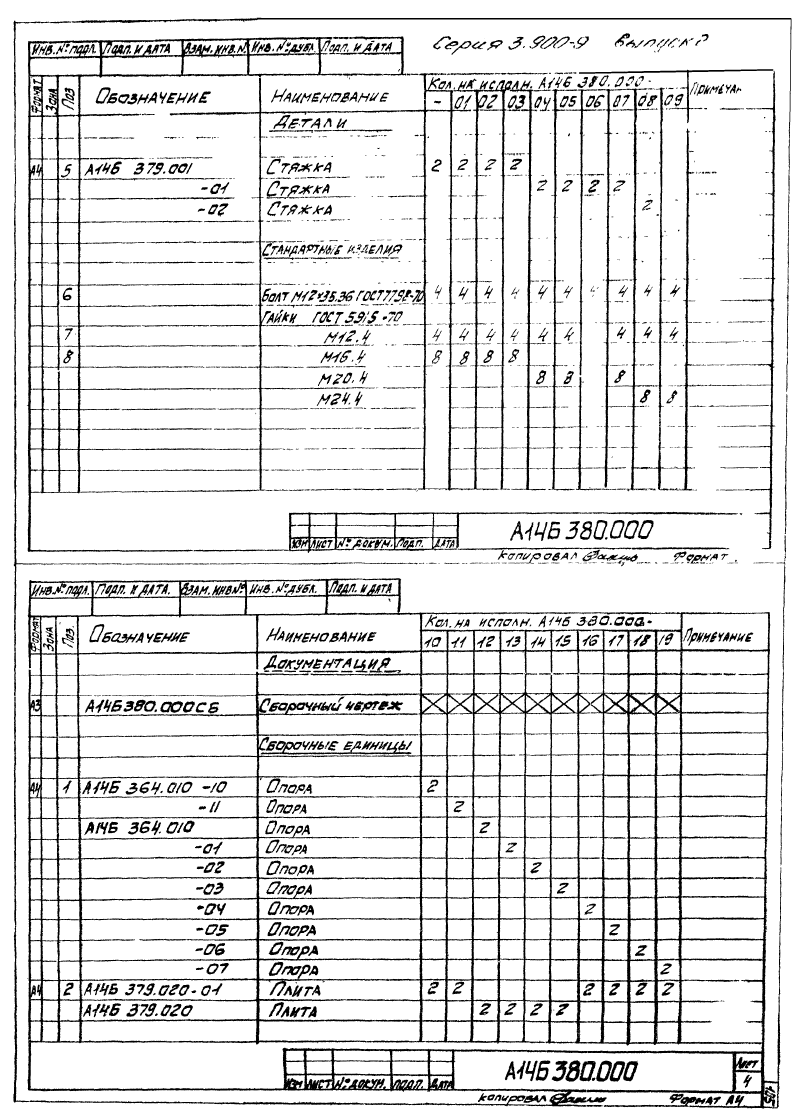 Серия 3.900-9 Выпуск
Инв. № подл. Подп. и дата Взам. инв. № Инв. № дубл. Подп. и дата
Формат Зона Поз Обозначение Наименование Кол. на исполн. А14Б 380.000- Примечан
- 01 02 03 04 05 06 07 08 09
Детали
А4 5 А14Б 379.001 Стяжка 2 2 2 2
-01 Стяжка 2 2 2 2
-02 Стяжка 2
Стандартные изделия
6 Болт М12×35.36 ГОСТ 7798-70 4 4 4 4 4 4 4 4 4 4
Гайки ГОСТ 5915-70
7 М12.4 4 4 4 4 4 4 4 4 4
8 М16.4 8 8 8 8
М20.4 8 8 8
М24.4 8 8
А14Б 380.000
Изм Лист № докум. Подп. Дата
Копировал Формат
Инв. № подл. Подп. и дата. Взам. инв № Инв. № дубл. Подп. и дата
Формат Зона Поз. Обозначение Наименование Кол. на исполн. А14Б 380.000- Примечание
10 11 12 13 14 15 16 17 18 19
Документация
А3 А14Б380.000СБ Сборочный чертеж
Сборочные единицы
А4 1 А14Б 364.010 -10 Опора 2
-11 Опора 2
А14Б 364.010 Опора 2
-01 Опора 2
-02 Опора 2
-03 Опора 2
-04 Опора 2
-05 Опора 2
-06 Опора 2
-07 Опора 2
А4 2 А14Б 379.020-01 Плита 2 2 2 2 2 2
А14Б 379.020 Плита 2 2 2 2
А14Б 380.000 Лист
4
Изм Лист № докум. Подп. Дата
Копировал Формат А4